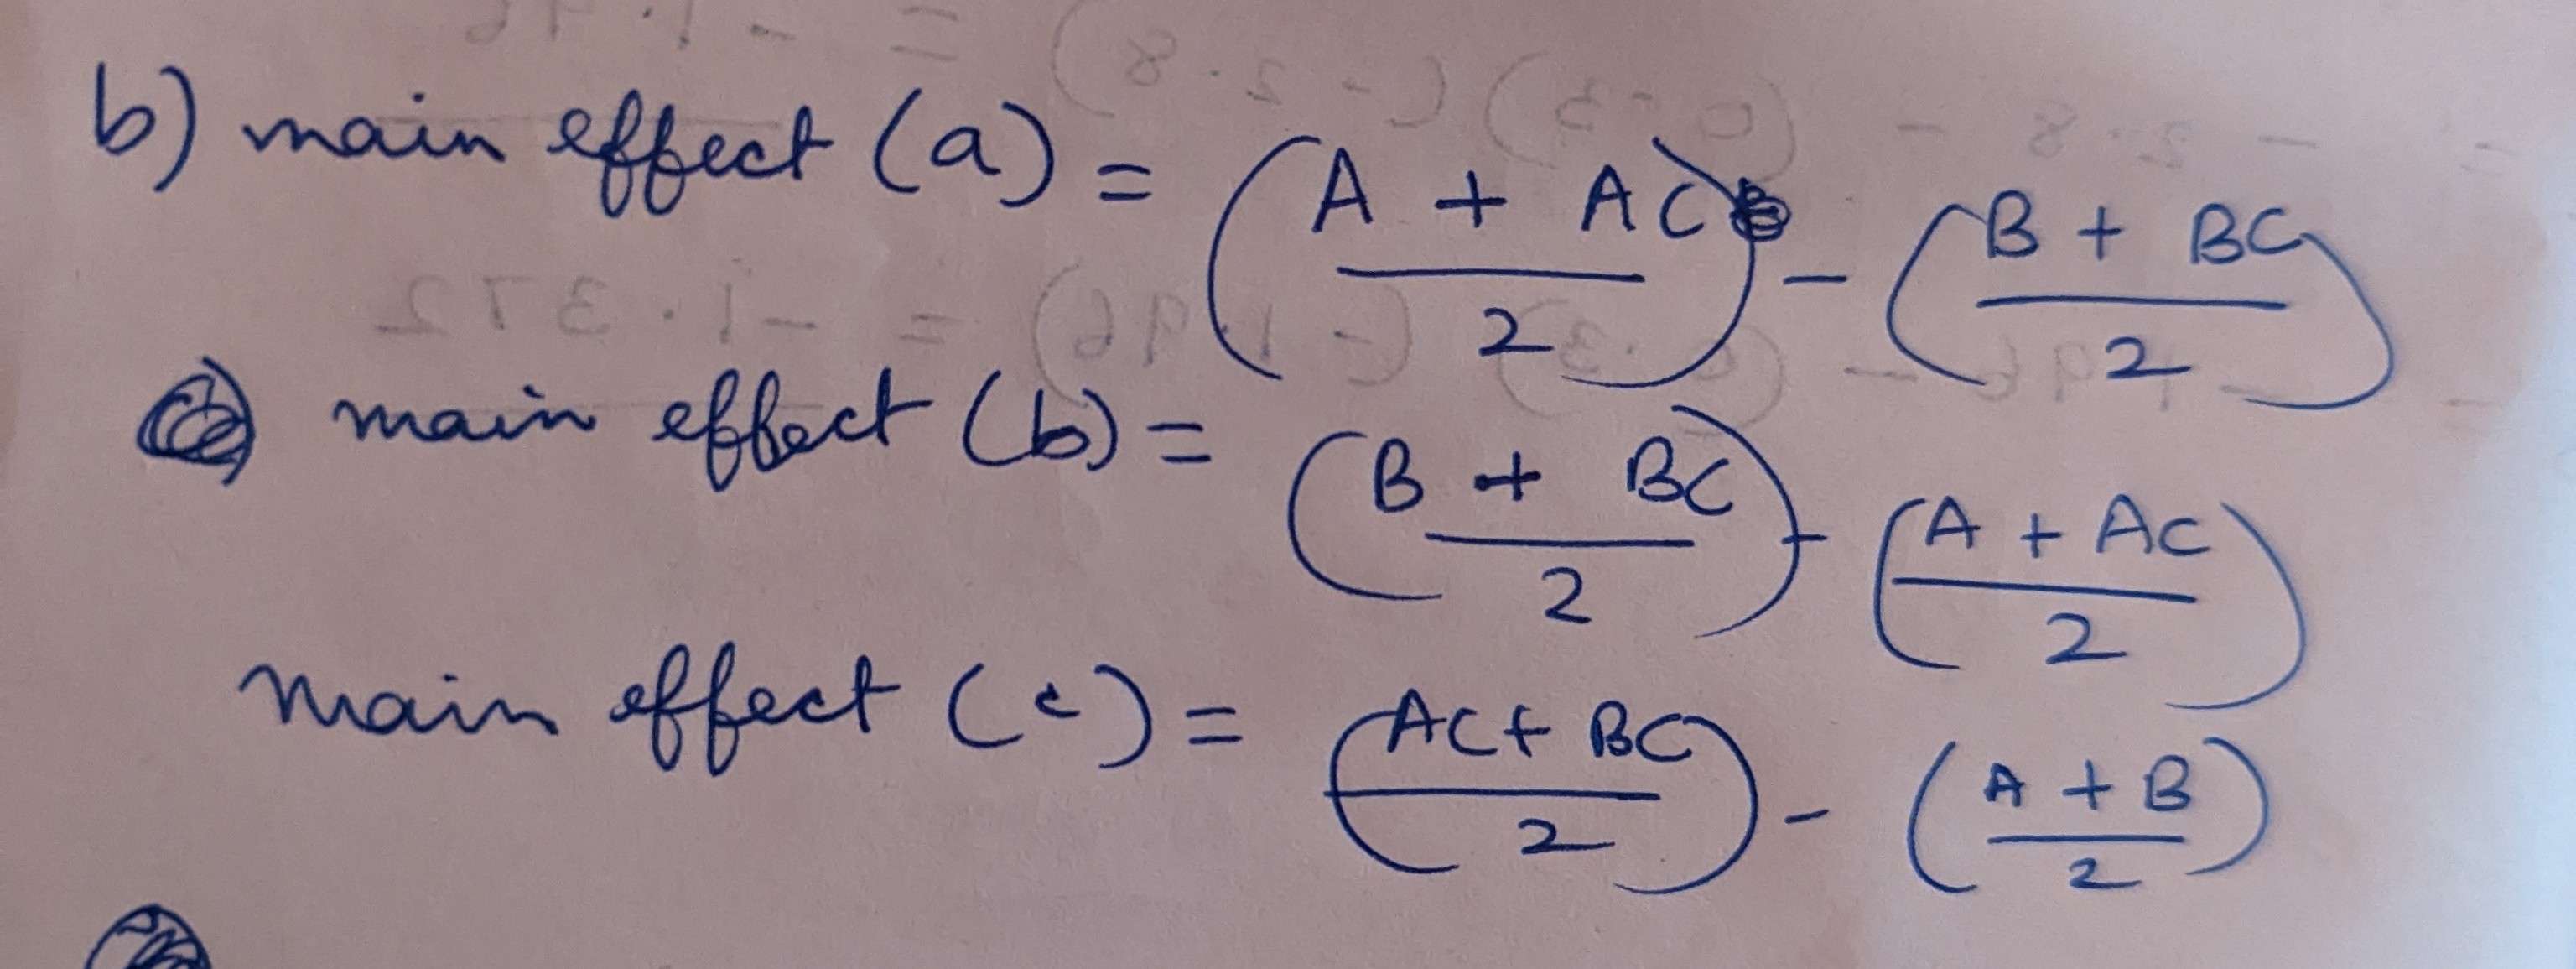 b) main effect (a) = (A + AC / 2) - (B + BC / 2)
main effect (b) = (B + BC / 2) - (A + AC / 2)
main effect (c) = (AC + BC / 2) - (A + B / 2)